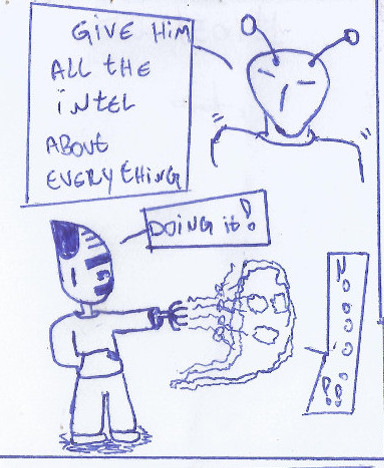 GIVE HIM
ALL tHE
iNtEL
ABOUt
EVERYtHiNG
DOiNG it!
N
o
o
o
o
o
!!